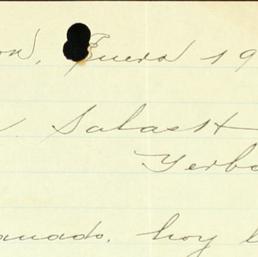 on, Enero 19
Salas H
Yerba
anado, hoy